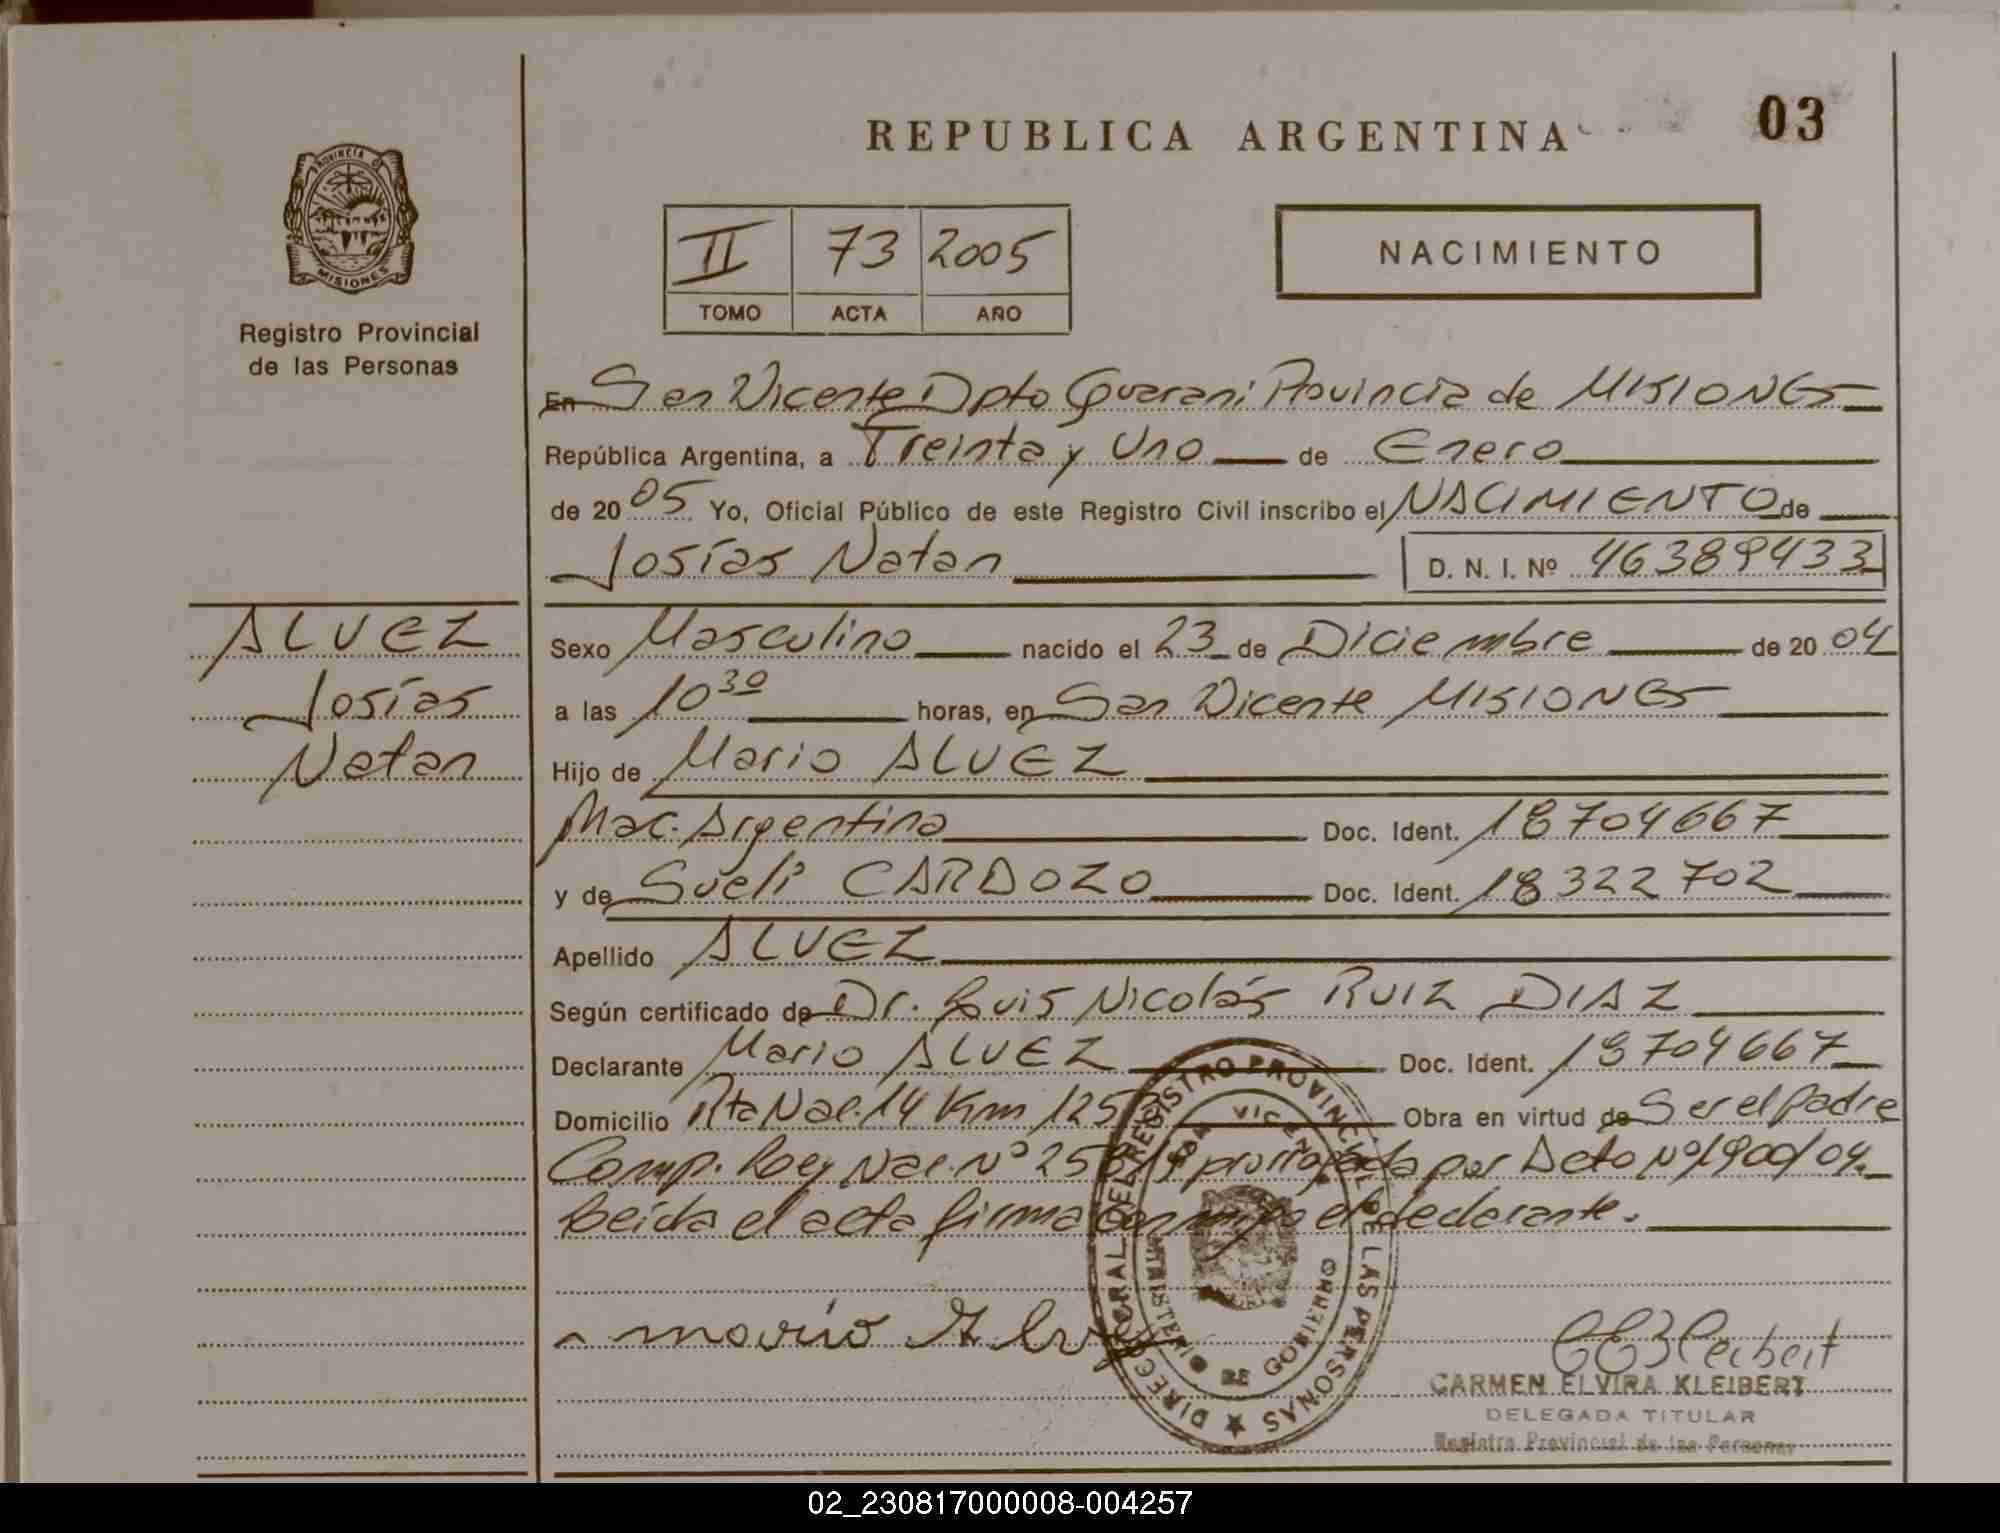 03
REPUBLICA ARGENTINA
PROVINCIA DE
MISIONES
Registro Provincial
de las Personas
II 73 2005
TOMO ACTA AÑO
NACIMIENTO
En San Vicente Dpto Guarani Provincia de MISIONES
República Argentina, a Treinta y Uno de Enero
de 2005 Yo, Oficial Público de este Registro Civil inscribo el NACIMIENTO de
Josías Natan D. N. I. Nº 46389433
ALVEZ
Josías
Natan
Sexo Masculino nacido el 23 de Diciembre de 2004
a las 10 30 horas, en San Vicente MISIONES
Hijo de Mario ALVEZ
Nac. Argentina Doc. Ident. 18704667
y de Sueli CARDOZO Doc. Ident. 18322702
Apellido ALVEZ
Según certificado de Dr. Luis Nicolás RUIZ DIAZ
Declarante Mario ALVEZ Doc. Ident. 18704667
Domicilio Rta Nac. 14 Km 125 Obra en virtud de Ser el Padre
Comp. Ley Nac. Nº prorrogada por Dcto Nº 1900/04.
Leída el acta firma conmigo el declarante.
mario Alvez
DIRECC. GRAL. DEL REGISTRO PROVINCIAL DE LAS PERSONAS
VICENTE
MINISTERIO DE GOBIERNO
CEKleibert
CARMEN ELVIRA KLEIBERT
DELEGADA TITULAR
Registro Provincial de las Personas
02_230817000008-004257